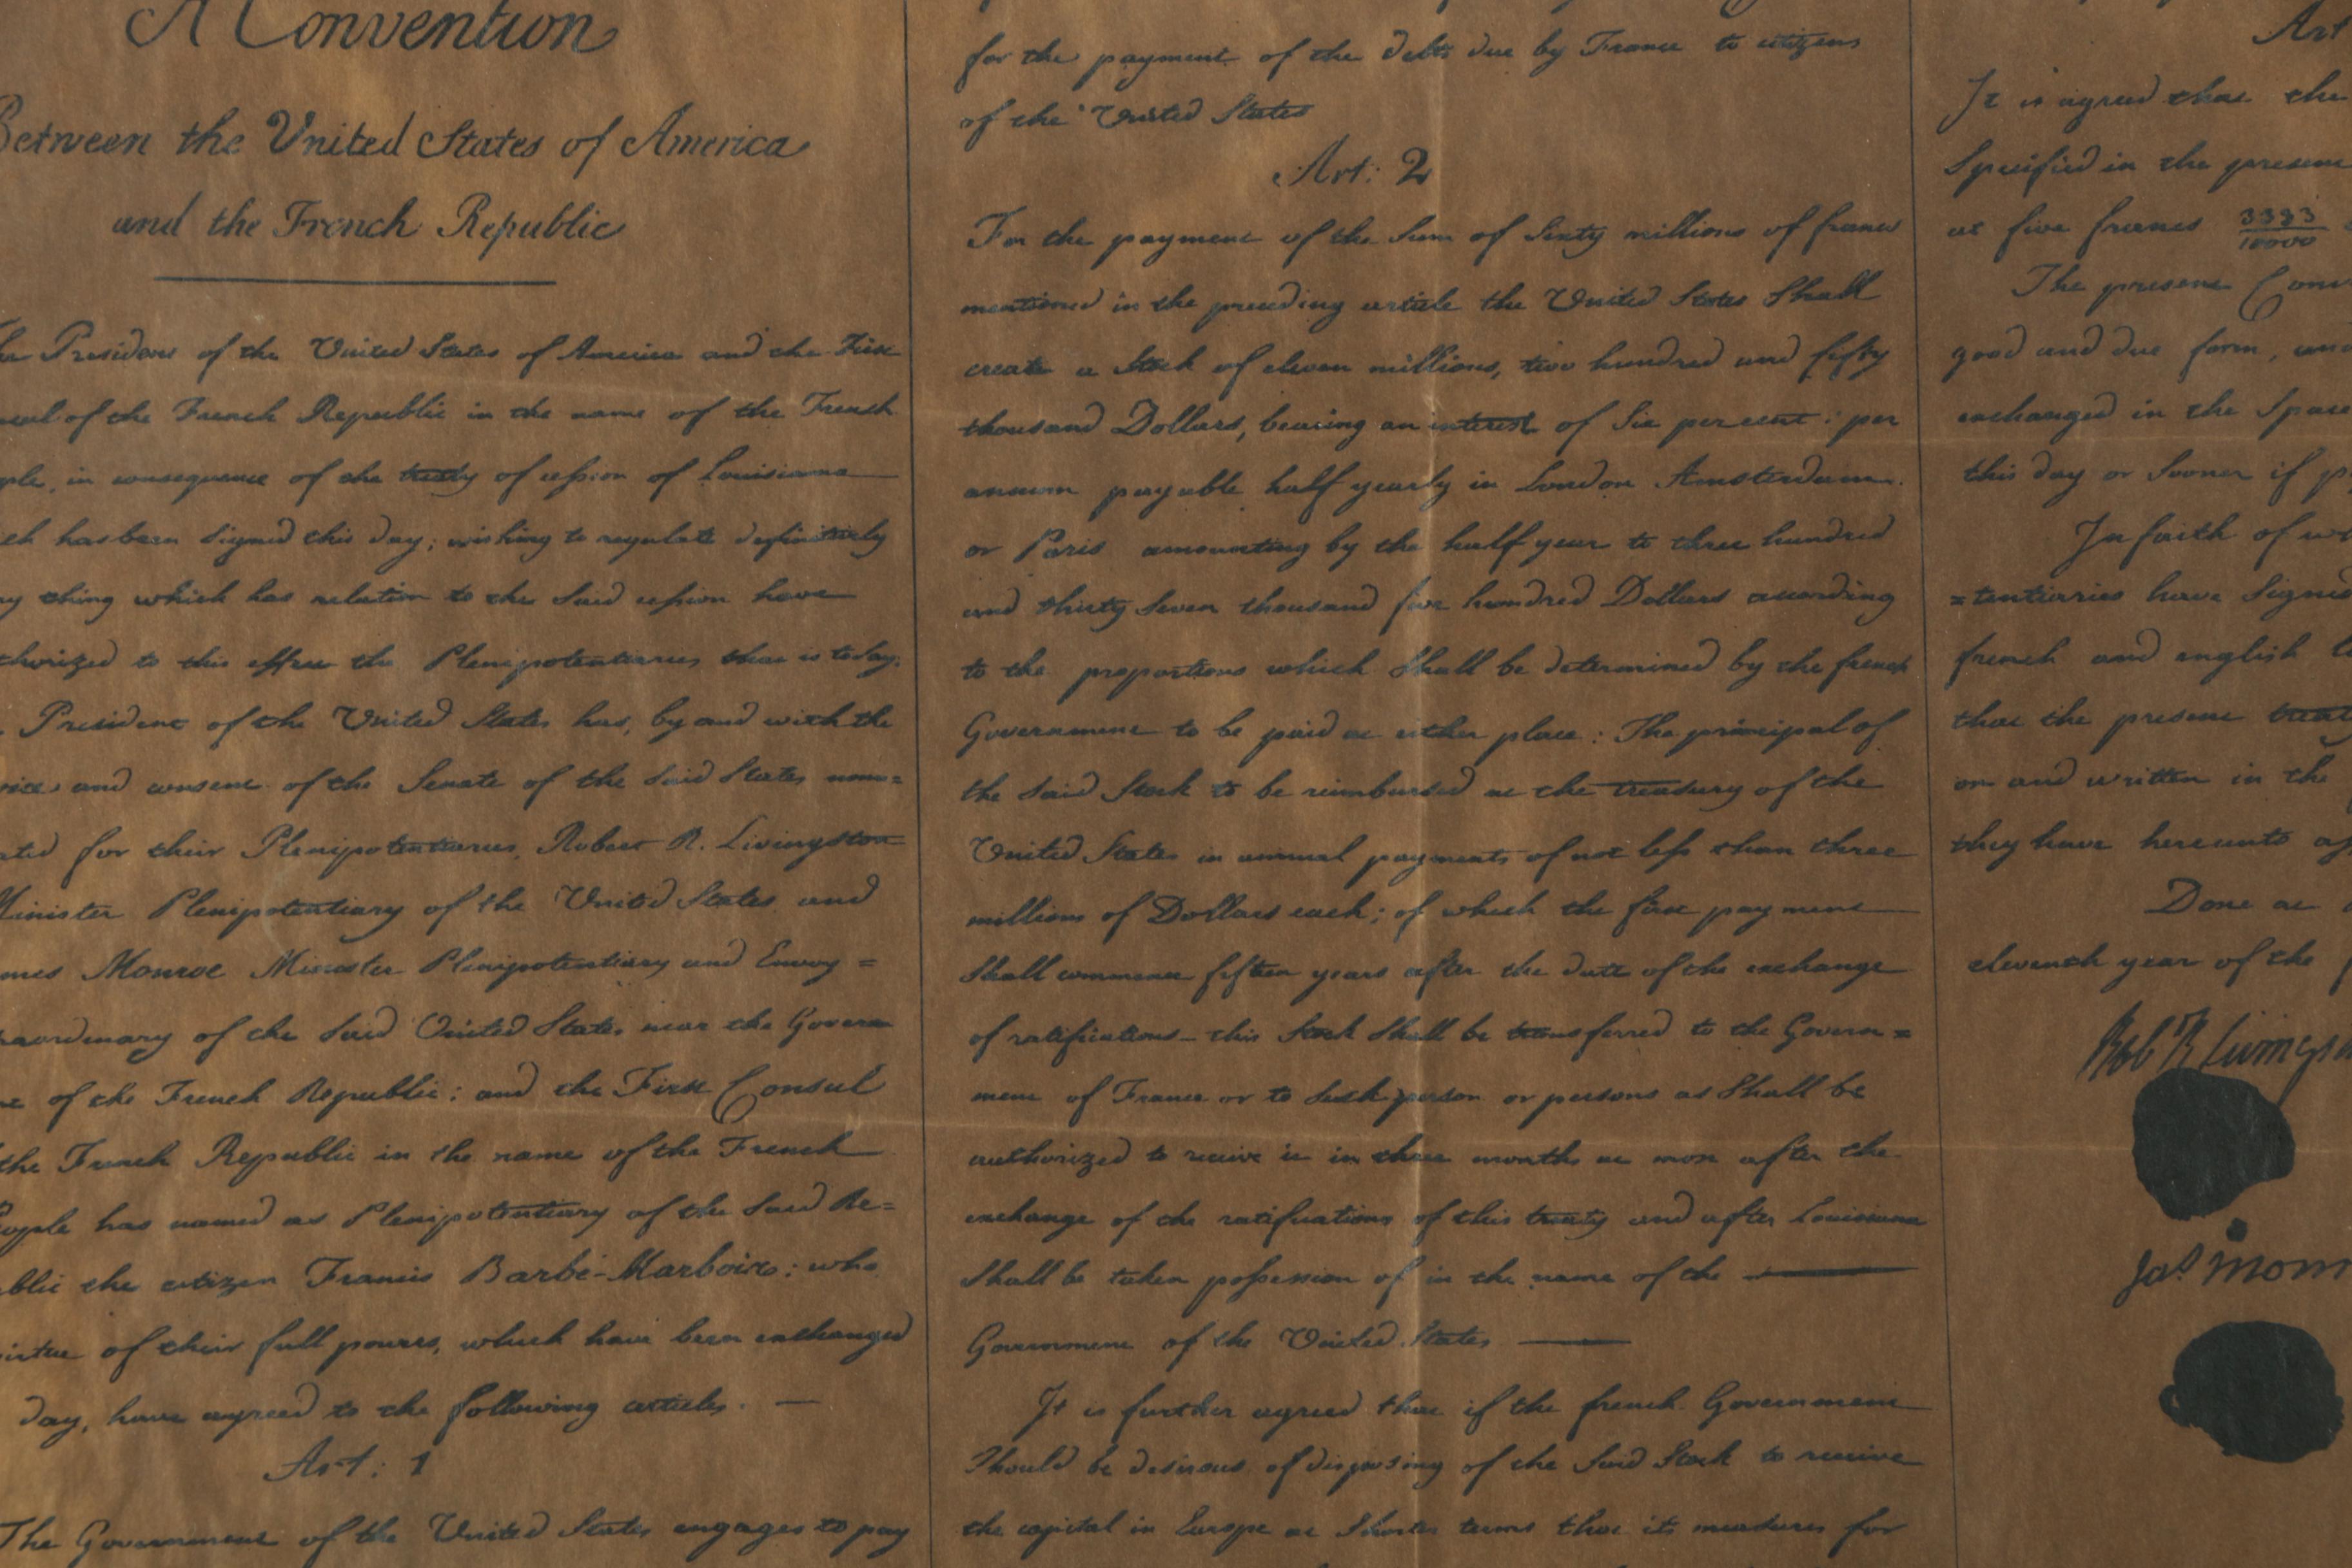 A Convention
Between the United States of America
and the French Republic
President of the United States of America and the First
of the French Republic in the name of the French
in consequence of the treaty of cession of Louisiana
has been Signed this day; wishing to regulate definitively
thing which has relation to the Said cession have
to this effect the Plenipotentiaries that is to say,
President of the United States has, by and with the
and consent of the Senate of the Said States, nomi=
for their Plenipotentiaries, Robert R. Livingston
Minister Plenipotentiary of the United States and
Monroe Minister Plenipotentiary and Envoy =
of the Said United States, near the Govern
of the French Republic; and the First Consul
the French Republic in the name of the French
People has named as Plenipotentiary of the Said Re=
the citizen Francis Barbé-Marbois; who
of their full powers, which have been exchanged
day, have agreed to the following articles. —
Art: 1
The Government of the United States engages to pay
for the payment of the debts due by France to citizens
of the United States
Art: 2
For the payment of the Sum of Sixty millions of francs
mentioned in the preceding article the United States Shall
create a Stock of eleven millions, two hundred and fifty
thousand Dollars, bearing an interest of Six per cent: per
annum payable half yearly in London Amsterdam
or Paris amounting by the half year to three hundred
and thirty Seven thousand five hundred Dollars according
to the proportions which Shall be determined by the french
Government to be paid at either place: The principal of
the Said Stock to be reimbursed at the treasury of the
United States in annual payments of not less than three
millions of Dollars each; of which the first payment
Shall commence fifteen years after the date of the exchange
of ratifications — this Stock Shall be transferred to the Govern=
ment of France or to Such person or persons as Shall be
authorized to receive it in three months at most after the
exchange of the ratifications of this treaty and after Louisiana
Shall be taken possession of in the name of the —
Government of the United States —
It is further agreed that if the french Government
Should be desirous of disposing of the Said Stock to receive
the capital in Europe at Shorter terms that its measures for
Art
It is agreed that the
Specified in the present
at five francs 3333/10000
The present
good and due form, and
exchanged in the Space
this day or Sooner if
In faith of
=tentiaries have Signed
french and english
that the present
on and written in the
they have hereunto
Done at
eleventh year of the
Rob R Livingst
Jas Monr